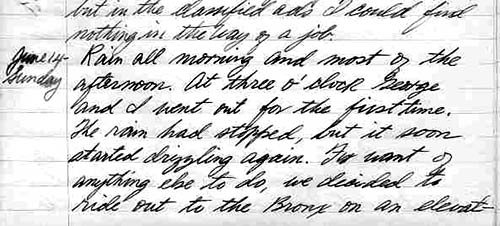 but in the classified ads I could find
nothing in the way of a job.
June 14- Rain all morning and most of the
Sunday afternoon. At three o'clock George
and I went out for the first time.
The rain had stopped, but it soon
started drizzling again. For want of
anything else to do, we decided to
ride out to the Bronx on an elevat-